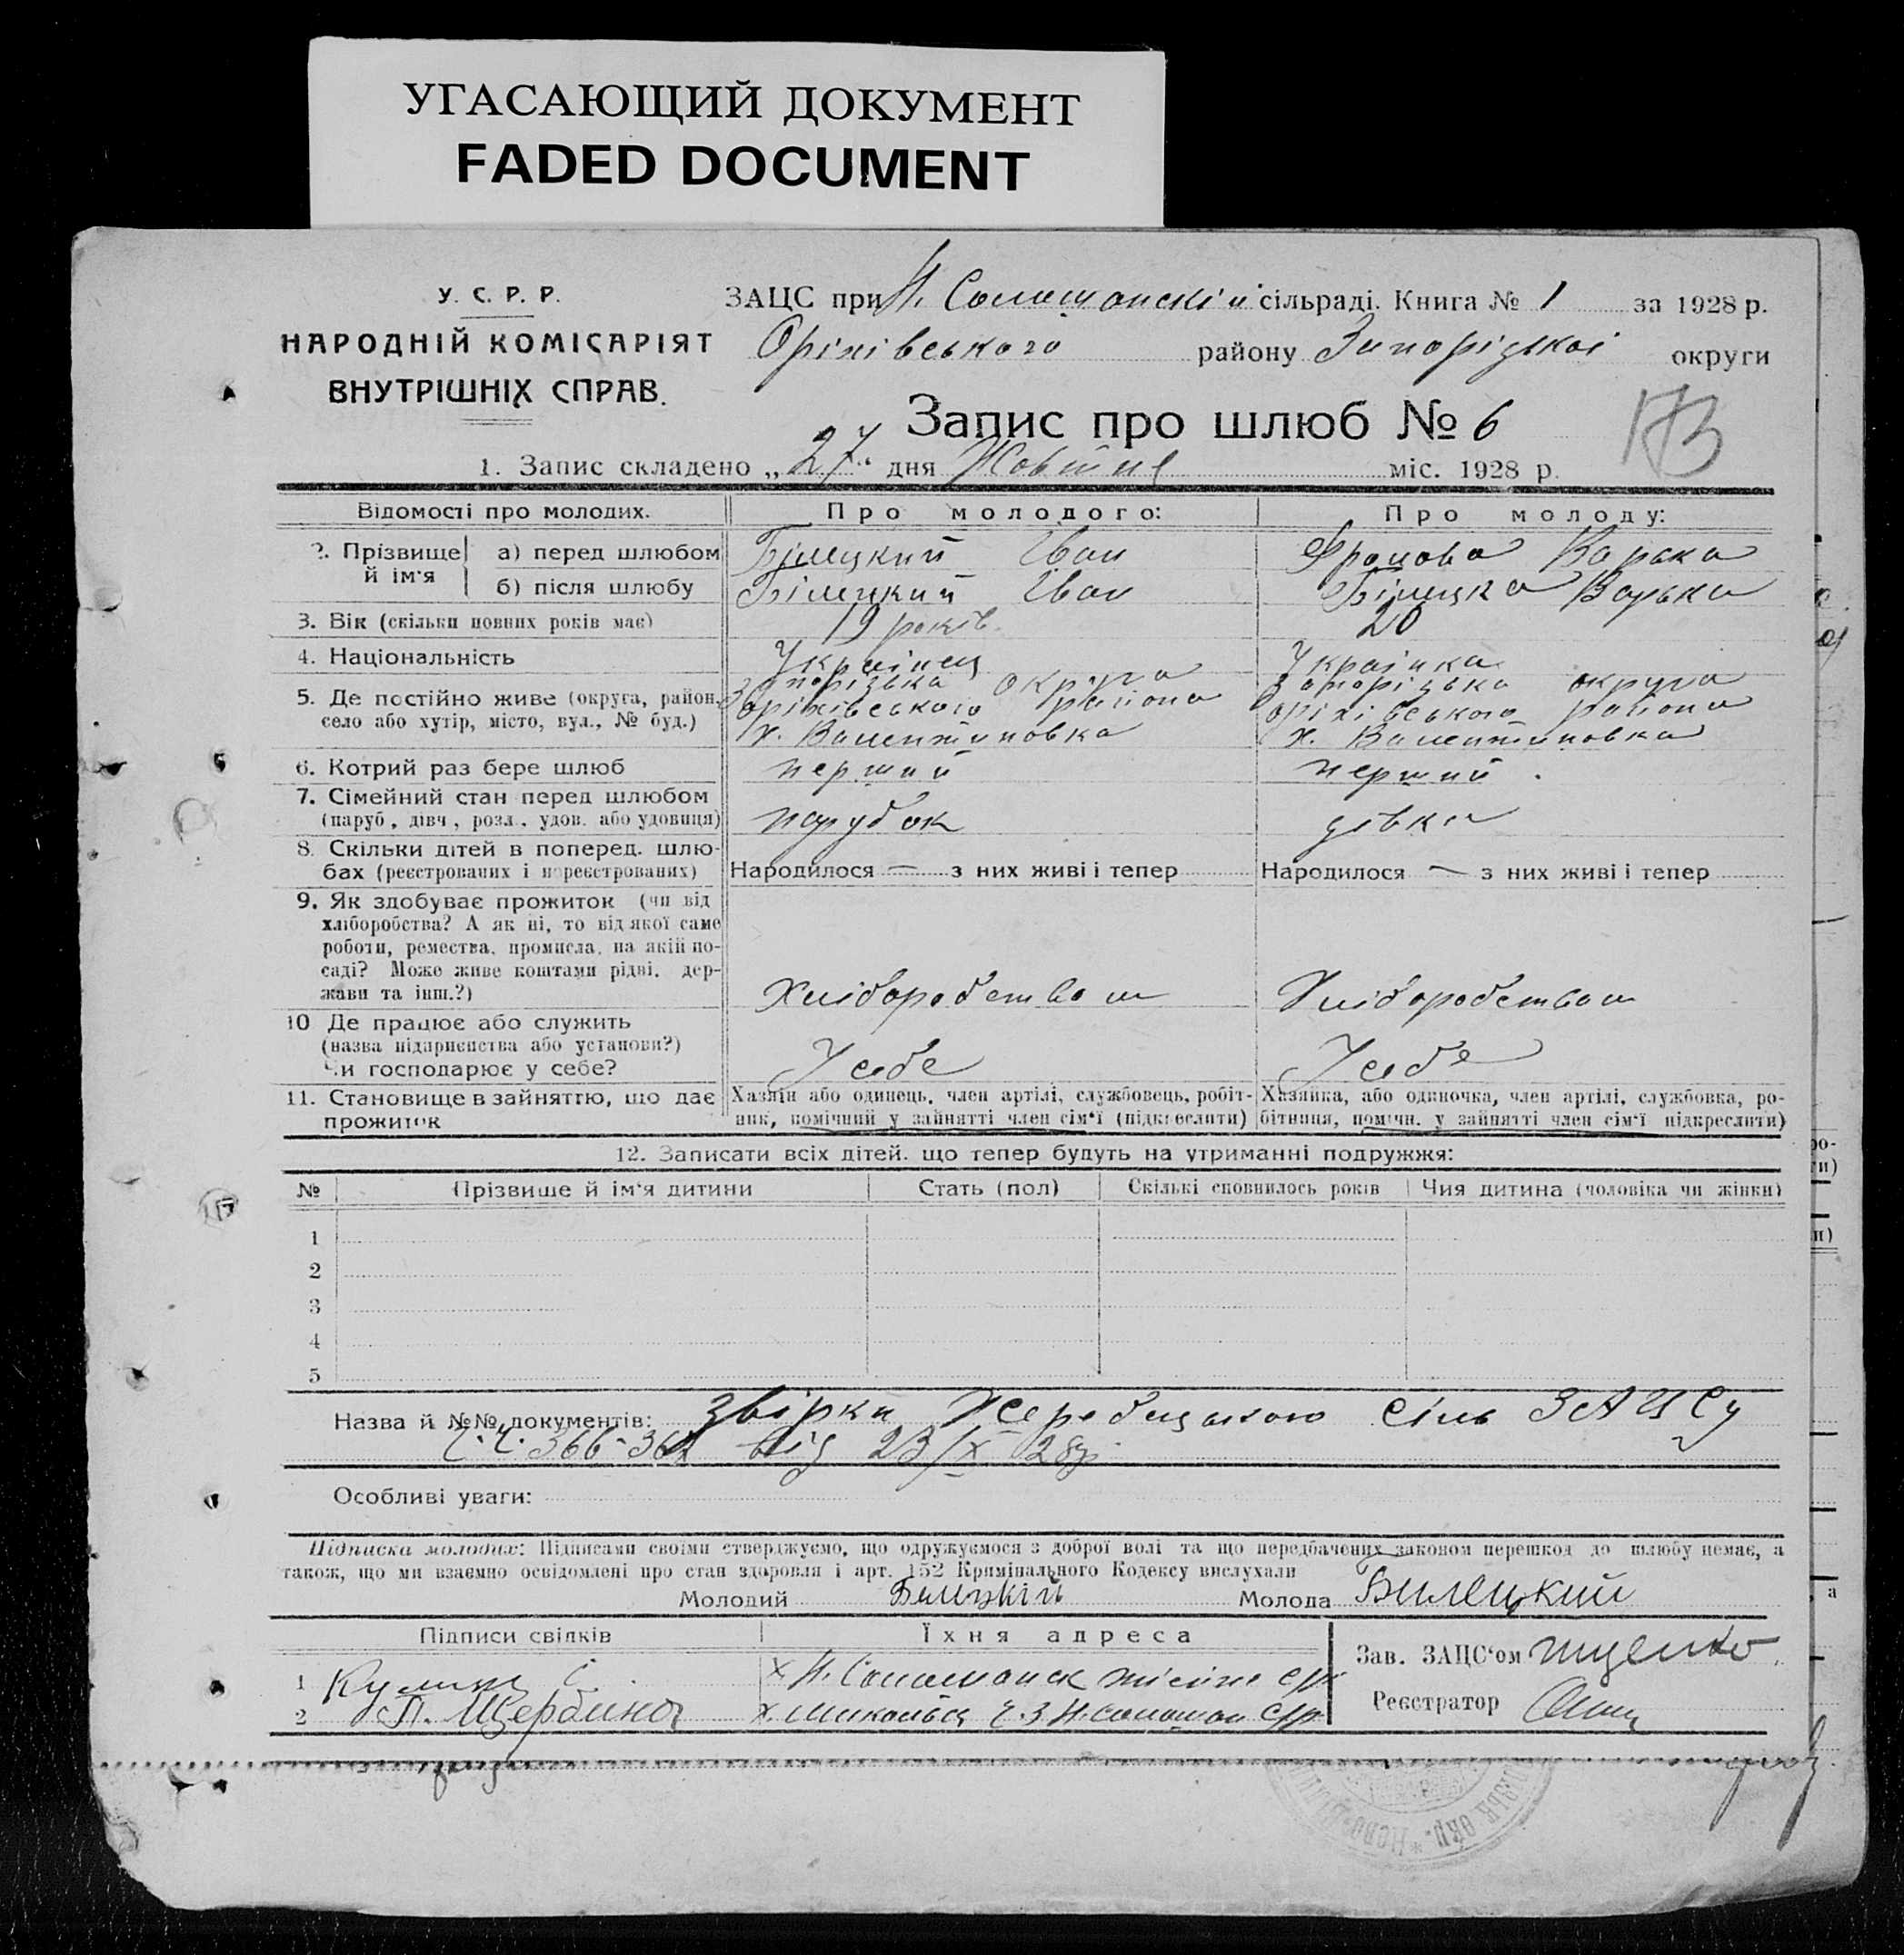 УГАСАЮЩИЙ ДОКУМЕНТ
FADED DOCUMENT
У. С. Р. Р.
НАРОДНІЙ КОМІСАРІЯТ
ВНУТРІШНІХ СПРАВ.
ЗАЦС при Н. сільраді. Книга № 1 за 1928 р.
Оріхівського району Запорізької округи
Запис про шлюб № 6
173
1. Запис складено „27“ дня Жовтня міс. 1928 р.
Відомості про молодих. Про молодого: Про молоду:
2. Прізвище й ім'я
а) перед шлюбом Білецкий Іван Варька
б) після шлюбу Білецкий Іван Білецка Варька
3. Вік (скільки повних років має) 19 років 20
4. Національність Українец Українка
5. Де постійно живе (округа, район, село або хутір, місто, вул., № буд.)
Запорізька округа Запорізька округа
Оріхівського района Оріхівського района
х. Валентиновка х. Валентиновка
6. Котрий раз бере шлюб перший перший
7. Сімейний стан перед шлюбом
(паруб., дівч., розл., удов. або удовиця) парубок дівка
8. Скільки дітей в поперед. шлю-
бах (реєстрованих і нереєстрованих) Народилося — з них живі і тепер Народилося — з них живі і тепер
9. Як здобуває прожиток (чи від
хліборобства? А як ні, то від якої саме
роботи, ремества, промисла, на якій по-
саді? Може живе коштами рідні, дер-
жави та інш.?) Хліборобством Хліборобством
10 Де працює або служить
(назва підприємства або установи?)
Чи господарює у себе? У себе У себе
11. Становище в зайняттю, що дає
прожиток
Хазяїн або одинець, член артілі, службовець, робіт-
ник, помічний у зайнятті член сім'ї (підкреслити)
Хазяйка, або одиночка, член артілі, службовка, ро-
бітниця, помічн. у зайнятті член сім'ї підкреслити)
12. Записати всіх дітей, що тепер будуть на утриманні подружжя:
№ Прізвище й ім'я дитини Стать (пол) Скількі сповнилось років Чия дитина (чоловіка чи жінки)
1
2
3
4
5
Назва й №№ документів: Жеребецького Сіль ЗАЦСу
Ч.Ч. 366- від 23/X 28р.
Особливі уваги:
Підписка молодих: Підписами своїми стверджуємо, що одружуємося з доброї волі та що передбачених законом перешкод до шлюбу немає, а
також, що ми взаємно освідомлені про стан здоровля і арт. 152 Кримінального Кодексу вислухали
Молодий Молода Билецкий
Підписи свідків Їхня адреса
1
2 П. Щербина
Зав. ЗАЦС'ом
Реєстратор